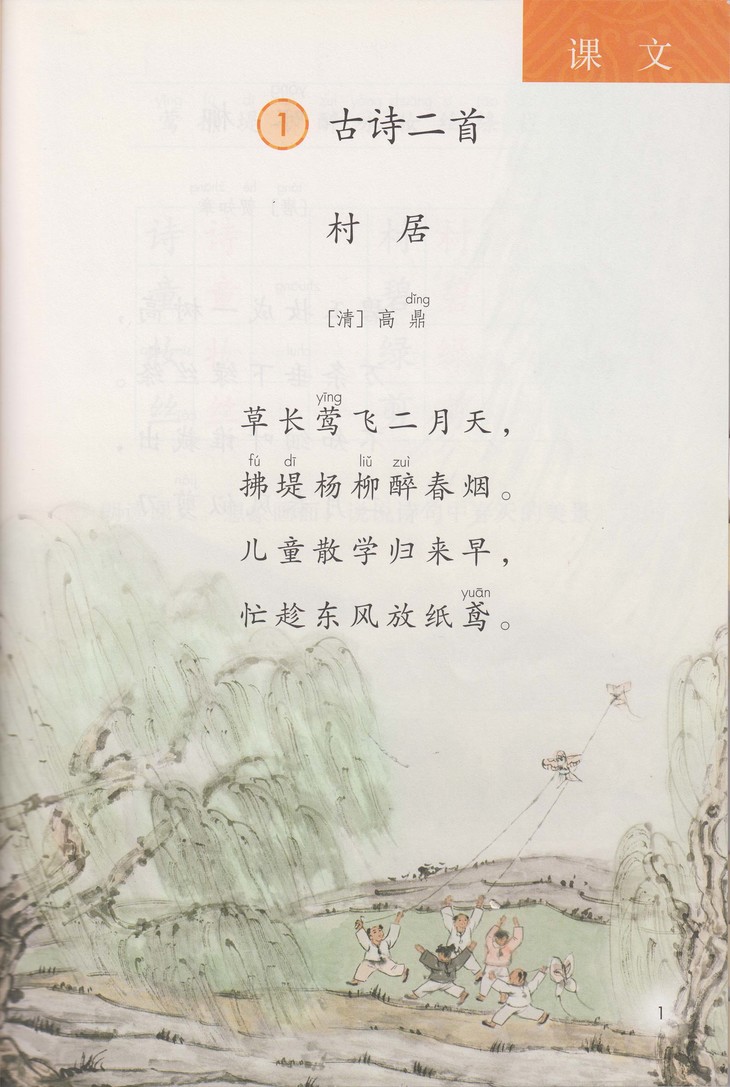 课 文
1 古诗二首
村 居
dǐng
[清] 高 鼎
yīng
草长莺飞二月天，
fú dī liǔ zuì
拂堤杨柳醉春烟。
儿童散学归来早，
yuān
忙趁东风放纸鸢。
1